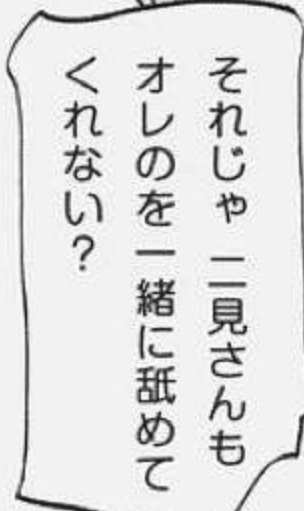 それじゃ 二見さんも
オレのを一緒に舐めて
くれない？